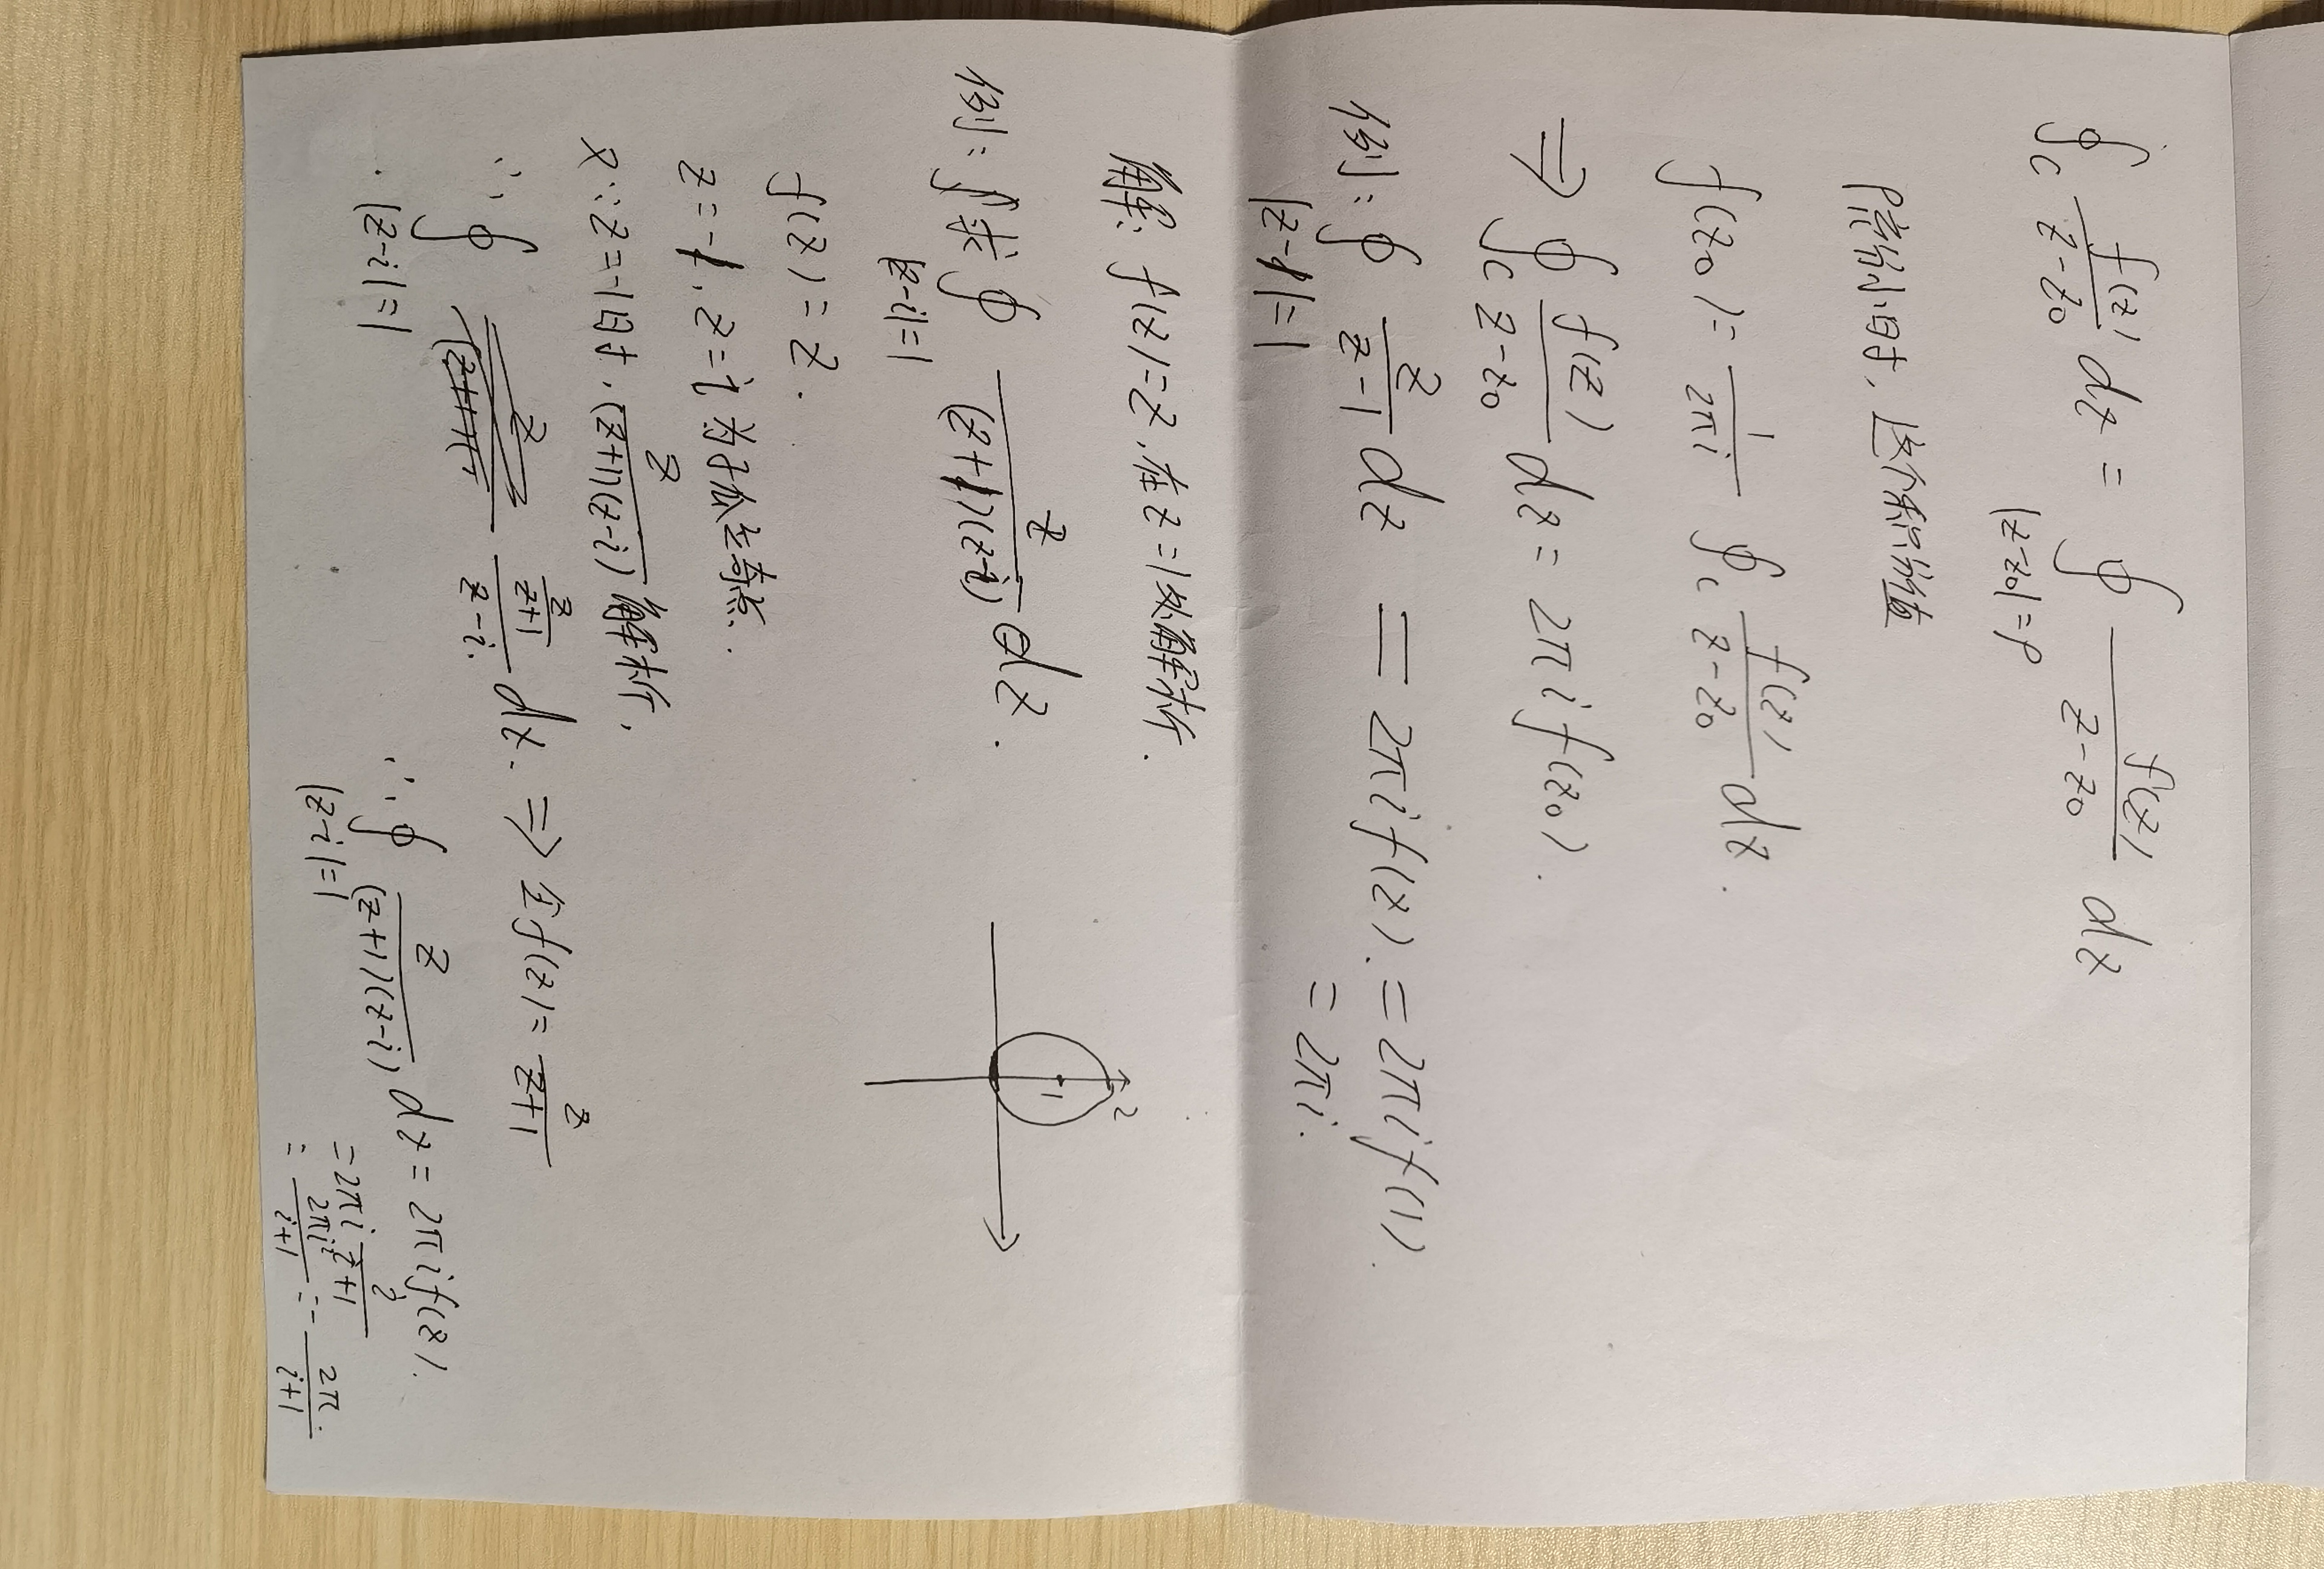 ∮_C f(z)/(z-z₀) dz = ∮_{|z-z₀|=ρ} f(z)/(z-z₀) dz
ρ充分小时,这个积分值
f(z₀)= 1/(2πi) ∮_C f(z)/(z-z₀) dz.
⇒ ∮_C f(z)/(z-z₀) dz = 2πi f(z₀).
例: ∮_{|z-1|=1} z/(z-1) dz = 2πi f(z). = 2πi f(1).
= 2πi.
解: f(z)=z,在z=1处解析.
2
1
例: 求 ∮_{|z-i|=1} z/((z+1)(z-i)) dz.
f(z)=z.
z=-1, z=i 为孤立奇点.
又∵z=-1时, z/((z+1)(z-i)) 解析,
∴ ∮_{|z-i|=1} (z/(z+1))/(z-i) dz. ⇒ 令f(z)= z/(z+1)
∴ ∮_{|z-i|=1} z/((z+1)(z-i)) dz = 2πi f(z).